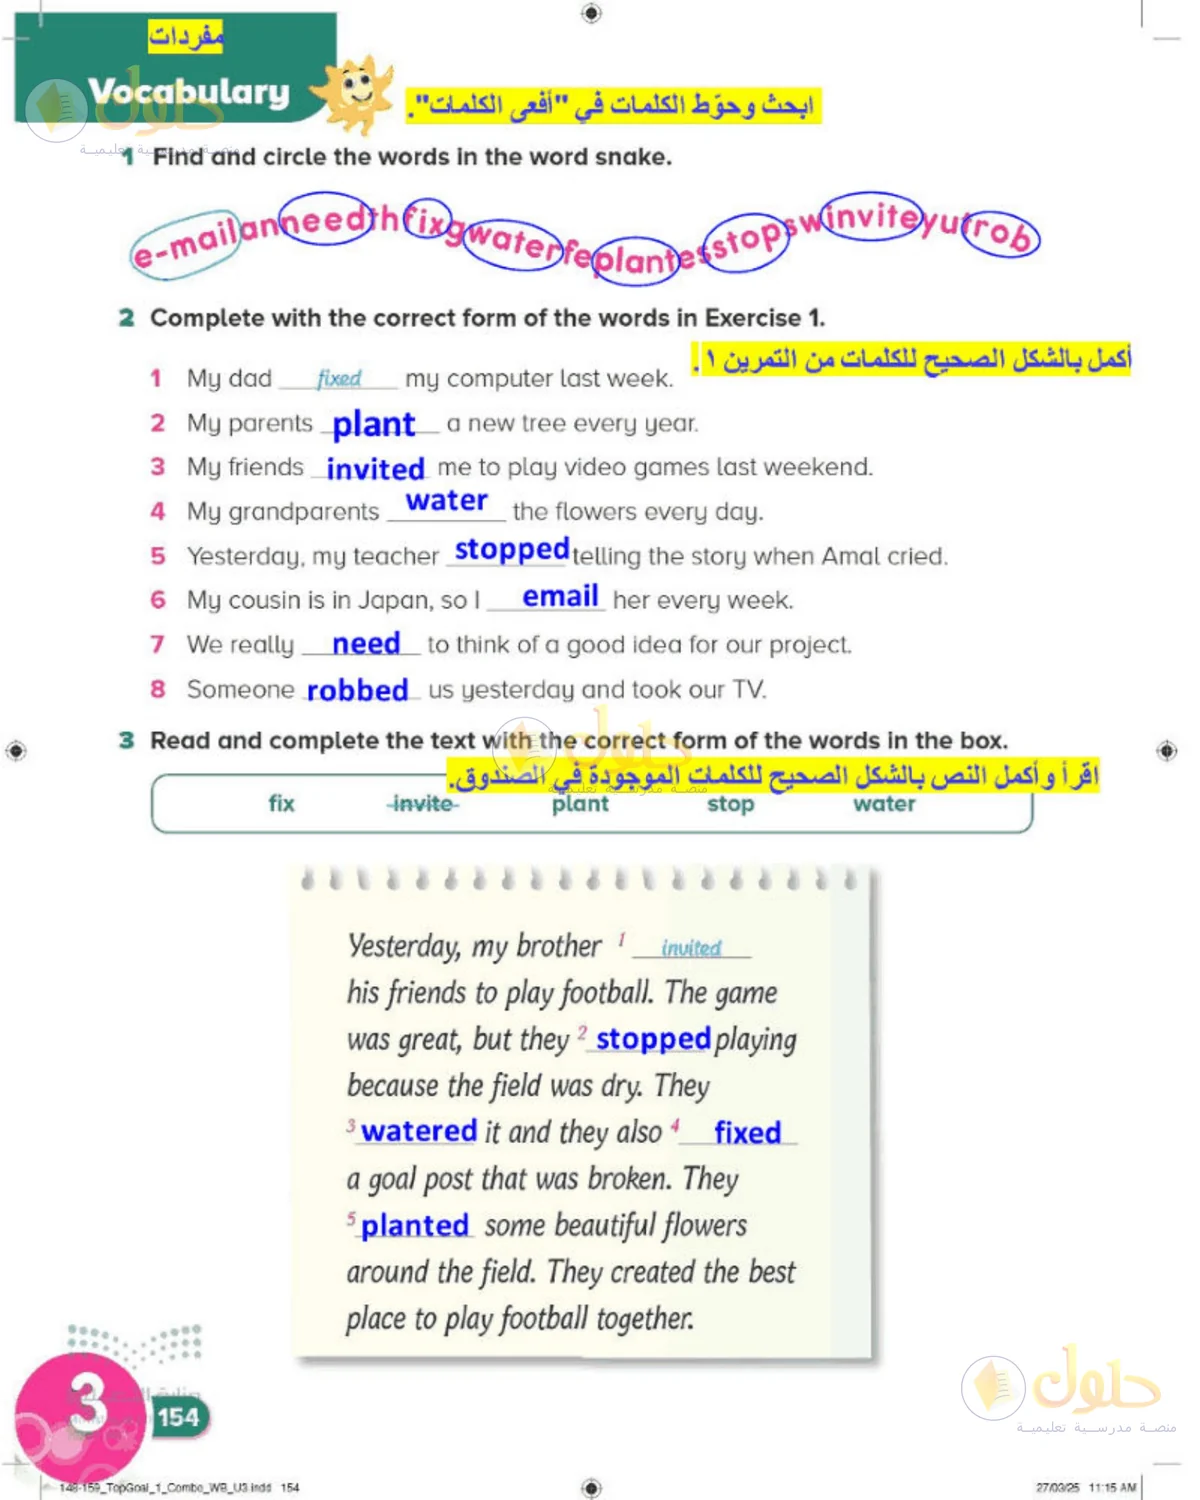 مفردات
Vocabulary
ابحث وحوّط الكلمات في "أفعى الكلمات".
حلول
منصة مدرسية تعليمية
1 Find and circle the words in the word snake.
e-mailanneedthfixgwaterfeplantesstopswinviteyutrob
2 Complete with the correct form of the words in Exercise 1.
أكمل بالشكل الصحيح للكلمات من التمرين ١.
1 My dad fixed my computer last week.
2 My parents plant a new tree every year.
3 My friends invited me to play video games last weekend.
4 My grandparents water the flowers every day.
5 Yesterday, my teacher stopped telling the story when Amal cried.
6 My cousin is in Japan, so I email her every week.
7 We really need to think of a good idea for our project.
8 Someone robbed us yesterday and took our TV.
حلول
3 Read and complete the text with the correct form of the words in the box.
اقرأ وأكمل النص بالشكل الصحيح للكلمات الموجودة في الصندوق.
منصة مدرسية تعليمية
fix invite plant stop water
Yesterday, my brother 1 invited
his friends to play football. The game
was great, but they 2 stopped playing
because the field was dry. They
3 watered it and they also 4 fixed
a goal post that was broken. They
5 planted some beautiful flowers
around the field. They created the best
place to play football together.
حلول
منصة مدرسية تعليمية
3
154
148-159_TopGoal_1_Combo_WB_U3.indd 154
27/03/25 11:15 AM